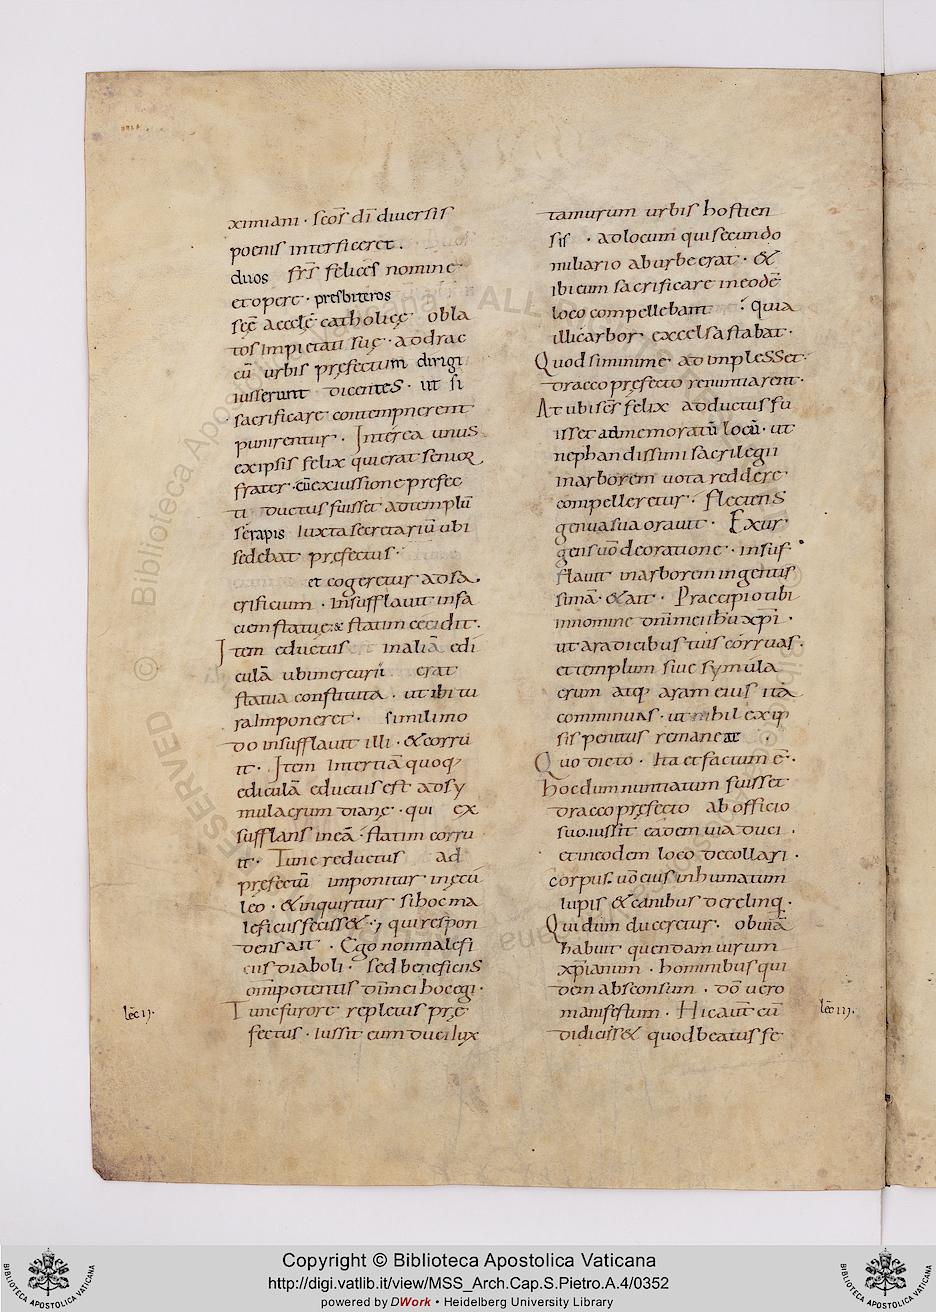 ximiani · scōs dī diuersis
poenis interficeret .
duos frs̄ felices nomine
et opere · presbiteros
sc̄ę aeccl̄ę catholicę obla
tos impietati suę · ad drac
cū urbis pręfectum dirigi
iusserunt dicentes · ut si
sacrificare contempnerent
punirentur . Interea unus
ex ipsis felix qui erat senior
frater · cū ex iussione prefec
ti ductus fuisset ad templū
serapis iuxta secretariū ubi
sedebat prefectus ·
et cogeretur ad sa
crificium · insufflauit in fa
ciem statuę · & statim cecidit ·
Item eductus in aliā edi
culā ubi mercurii erat
statua constituta . ut ibi tu
ra imponeret · simili mo
do insufflauit illi · & corru
it · Item in tertiā quoq;
ediculā eductus est ad sy
mulacrum dianę · qui ex
sufflans in eā · statim corru
it · Tunc reductus ad
pręfectū imponitur in ęcu
leo · & inquiritur si hoc ma
leficiis fecisset · qui respon
dens ait · Ego non malefi
ciis diaboli · sed beneficiis
omīpotentis dn̄i mei hoc egi ·
Tunc furore repletus prę
fectus · iussit eum duci lux
lēc ij ·
tamurum urbis hostien
sis · ad locum qui secundo
miliario ab urbe erat · &
ibi eum sacrificare in eodē
loco compellebant · quia
illic arbor excelsa stabat ·
Quod si minime adimplesset
dracco pręfecto renuntiarent ·
At ubi scs̄ felix adductus fu
isset ad memoratū locū · ut
nephandissimi sacrilegii
in arborem uota reddere
compelleretur · flectens
genua sua orauit · Exur
gens uō de oratione · insuf
flauit in arborem ingentis
simā · & ait · Praecipio tibi
in nomine dn̄i mei ihū xp̄i ·
ut a radicibus tuis corruas ·
et templum siue symula
crum atq; aram eius ita
comminuas · ut nihil ex ip
sis penitus remaneat .
Quo dicto · Ita et factum ē ·
hoc dum nuntiatum fuisset
dracco pręfecto ab officio
suo iussit eadem uia duci .
et in eodem loco decollari ·
corpus uō eius inhumatum
lupis & canibus derelinq ·
Qui dum duceretur · obuiā
habuit quendam uirum
xp̄ianum · hominibus qui
dem absconsum . dō uero
manifestum · Hic aut̄ cū
didicisset quod beatus fe
lēc iij ·
Copyright © Biblioteca Apostolica Vaticana
http://digi.vatlib.it/view/MSS_Arch.Cap.S.Pietro.A.4/0352
powered by DWork • Heidelberg University Library